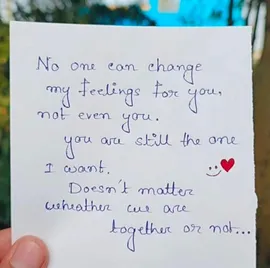 No one can change
my feelings for you,
not even you.
you are still the one
I want.
Doesn't matter
wheather we are
together or not...